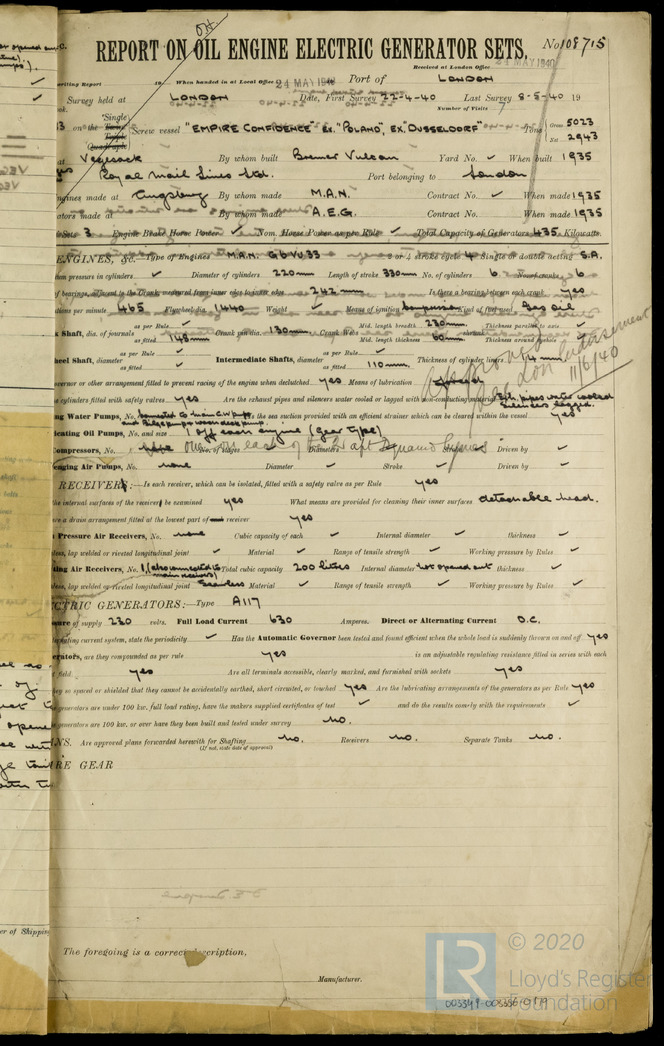 REPORT ON OIL ENGINE ELECTRIC GENERATOR SETS. No 108715
Received at London Office 24 MAY 1940
writing Report 19 When handed in at Local Office 24 MAY 1940 Port of LONDON
Survey held at LONDON Date, First Survey 22-4-40 Last Survey 8-5-40 19
Number of Visits 7
on the Single Twin Triple Quadruple Screw vessel "EMPIRE CONFIDENCE" ex. "POLAND", EX. "DUSSELDORF" Tons Gross 5023 Net 2943
at Vegesack By whom built Bremer Vulcan Yard No. ✓ When built 1935
Royal Mail Lines Ltd. Port belonging to London
Engines made at Augsburg By whom made M.A.N. Contract No. ✓ When made 1935
ators made at By whom made A.E.G. Contract No. When made 1935
Sets 3 Engine Brake Horse Power ✓ Nom. Horse Power as per Rule ✓ Total Capacity of Generators 435 Kilowatts.
ENGINES, &c. Type of Engines M.A.N. G6VU33 2 or 4 stroke cycle 4 Single or double acting S.A.
um pressure in cylinders ✓ Diameter of cylinders 220 mm Length of stroke 330 mm No. of cylinders 6 No. of cranks 6
of bearings, adjacent to the Crank, measured from inner edge to inner edge 242 mm Is there a bearing between each crank yes
utions per minute 465 Flywheel dia. 1440 Weight ✓ Means of ignition compression Kind of fuel used Gas oil
k Shaft, dia. of journals as per Rule ✓ as fitted 148 mm Crank pin dia. 130 mm Crank Webs Mid. length breadth 230 mm Mid. length thickness 60 mm Thickness parallel to axis ✓ Thickness around eyehole ✓
heel Shaft, diameter as per Rule ✓ as fitted ✓ Intermediate Shafts, diameter as per Rule ✓ as fitted 110 mm Thickness of cylinder liners
overnor or other arrangement fitted to prevent racing of the engine when declutched yes Means of lubrication forced
e cylinders fitted with safety valves yes Are the exhaust pipes and silencers water cooled or lagged with non-conducting material Exh. pipes water cooled silencers lagged.
ng Water Pumps, No. connected to main C.W. pump and Bilge pumps when desk pump. Is the sea suction provided with an efficient strainer which can be cleared within the vessel yes
icating Oil Pumps, No. and size 1 off each engine (Gear type)
Compressors, No. one on each of No. of stages Diameters Stroke ✓ Driven by ✓
enging Air Pumps, No. none Diameter ✓ Stroke ✓ Driven by ✓
RECEIVERS:- Is each receiver, which can be isolated, fitted with a safety valve as per Rule yes
the internal surfaces of the receiver be examined yes What means are provided for cleaning their inner surfaces detachable head.
re a drain arrangement fitted at the lowest part of each receiver yes
Pressure Air Receivers, No. none Cubic capacity of each ✓ Internal diameter ✓ thickness ✓
less, lap welded or riveted longitudinal joint ✓ Material ✓ Range of tensile strength ✓ Working pressure by Rules ✓
ting Air Receivers, No. 1 (also connected to main receivers) Total cubic capacity 200 litres Internal diameter not opened out thickness ✓
less, lap welded or riveted longitudinal joint Seamless Material ✓ Range of tensile strength ✓ Working pressure by Rules ✓
CTRIC GENERATORS:- Type A117
sure of supply 230 volts. Full Load Current 630 Amperes. Direct or Alternating Current D.C.
lternating current system, state the periodicity ✓ Has the Automatic Governor been tested and found efficient when the whole load is suddenly thrown on and off yes
erators, are they compounded as per rule yes is an adjustable regulating resistance fitted in series with each
field yes Are all terminals accessible, clearly marked, and furnished with sockets yes
they so spaced or shielded that they cannot be accidentally earthed, short circuited, or touched yes Are the lubricating arrangements of the generators as per Rule yes
generators are under 100 kw. full load rating, have the makers supplied certificates of test ✓ and do the results comply with the requirements ✓
generators are 100 kw. or over have they been built and tested under survey no.
ANS. Are approved plans forwarded herewith for Shafting no. Receivers no. Separate Tanks no.
(If not, state date of approval)
RE GEAR
11/6/40
er of Shipping
The foregoing is a correct description,
Manufacturer.
LR © 2020
Lloyd's Register
Foundation